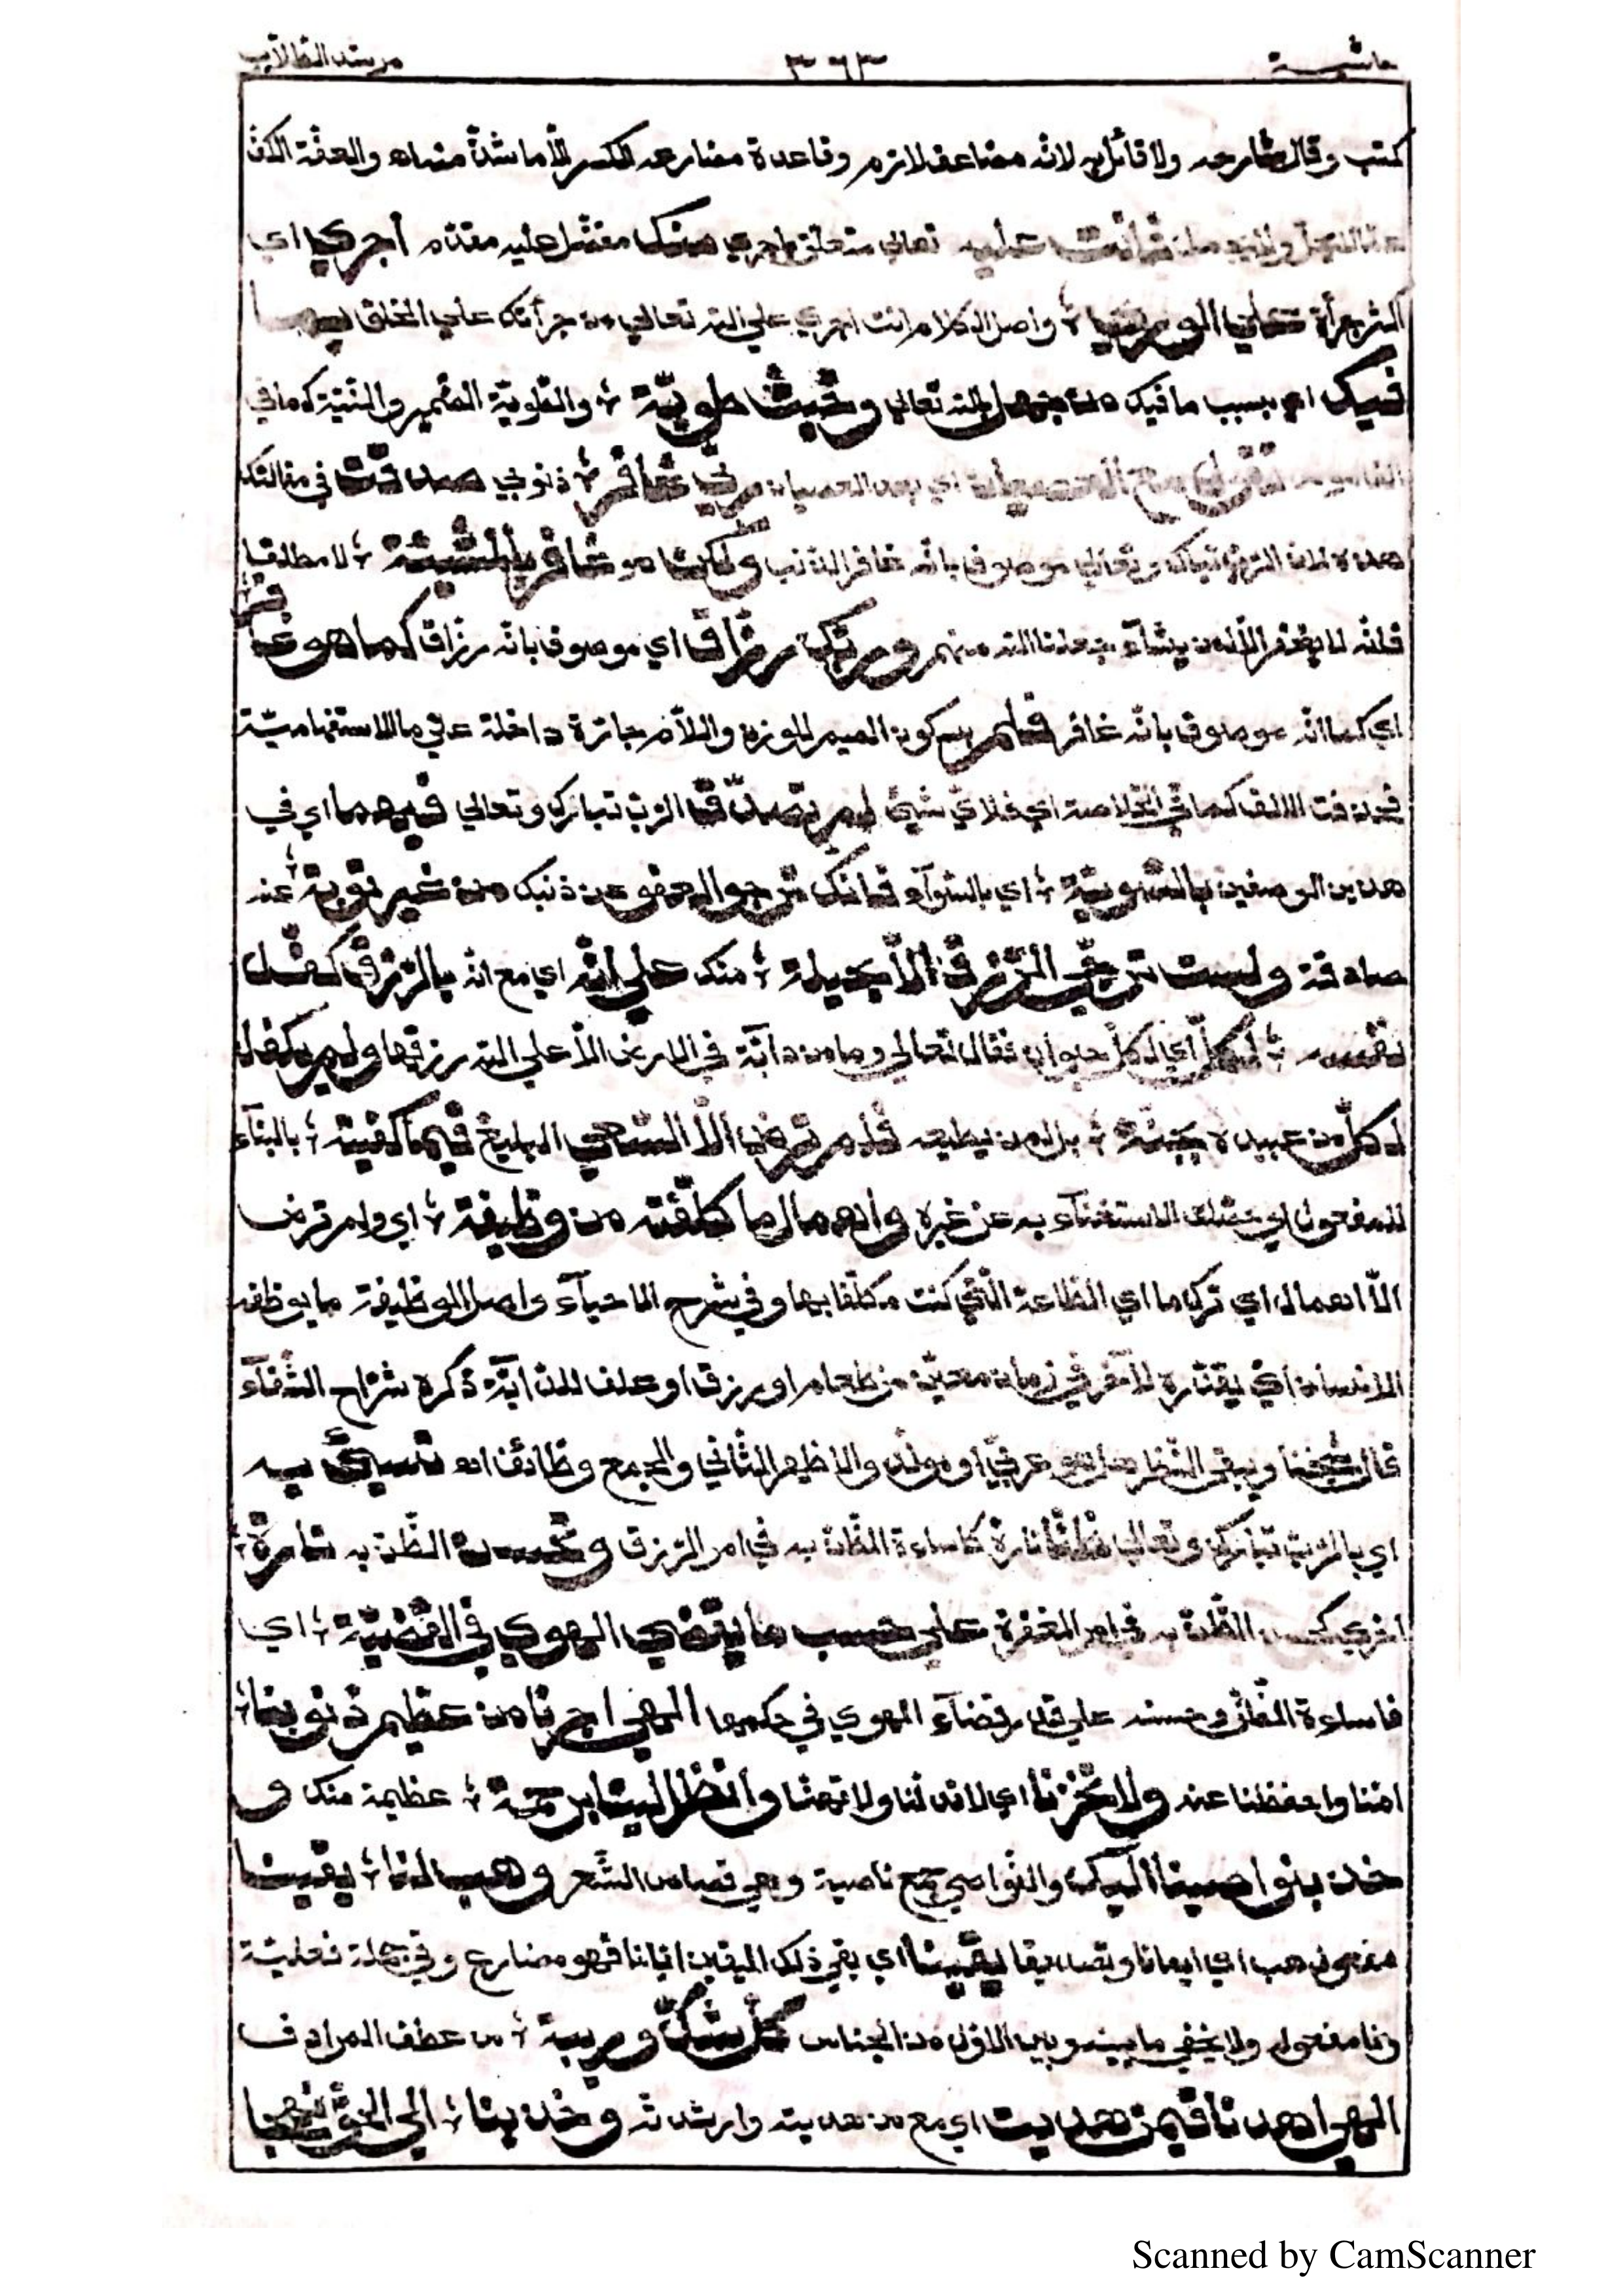 حاشية ٣٦٣ مرشد الطلاب
كتب وقال شارحه ولا قائل به لانه مضاعف لازم وقاعدة مضارعه الكسر الّا ما شذّ منها اه والعفّة الكفّ
عما لا يحل ولا يجمل فانت عليه تعالى متعلق باجري منك مفضّل عليه مقدّم أجري اي
اكثر جرأة على البريّة ؛ واصل الكلام انت اجري على الله تعالى من جرأتك على الخلق بما
فيك اي بسبب ما فيك من جهل بالله تعالى وخبث طويّة ؛ والطّويّة الضّمير والنّيّة كما في
القاموس تقول مع العصيان اي بعد العصيان ربي غافر ؛ ذنوبي صدقت في مقالتك
هذه لان الربّ تبارك وتعالى موصوف بانّه غافر الذنب ولكن هو غافر بالمشيئة ؛ لا مطلقا
فانّه لا يغفر الّا لمن يشآء جعلنا الله منهم وربّك رزّاق اي موصوف بانّه رزّاق كما هو غافر
اي كما انّه موصوف بانّه غافر فلم بسكون الميم للوزن واللّام جارّة داخلة على ما الاستفهاميّة
فحذفت الالف كما في الخلاصة اي فلايّ شيئ لم تصدّق الربّ تبارك وتعالى فيهما اي في
هذين الوصفين بالسّويّة ؛ اي بالسّوآء فانك ترجو العفو عن ذنبك من غير توبة ؛ عنه
صادقة ولست ترجّي الرّزق الّا بحيلة ؛ منك على انّه اي مع انّه بالرّزق كفّل
نفسه ؛ لكلّ اي لكلّ حيوان فقال تعالى وما من دآبّة في الارض الّا على الله رزقها ولم يكفل
لكلّ من عبيده بجنّة ؛ بل لمن يطيعه فلم ترض الّا السّعي البليغ فيما كفيته ؛ بالبنآء
للمفعول اي حصلك الاستغنآء به عن غيره واهمال ما كلّفته من وظيفة ؛ اي ولم ترض
الّا اهمال اي ترك ما اي الطّاعة الّتي كنت مكلّفا بها وفي شرح الاحيآء واصل الوظيفة ما يوظفه
الانسان اي يقدّره لآخر في زمان معيّن من طعام او رزق او علف للدّآبّة ذكره شرّاح الشّفآء
قال شيخنا ويبقى النّظر هل هو عربيّ او مولّد والاظهر الثّاني والجمع وظائف اه تسيئ به
اي بالربّ تبارك وتعالى ظنّا تارة كاساءة الظّن به في امر الرّزق وتحسن الظّن به تارة ؛
اخري كحسن الظّن به في امر المغفرة على حسب ما يقضي الهوي في القضيّة ؛ اي
فاساءة الظّن وحسنه على قدر قضآء الهوي في حكمها الهي اجرنا من عظيم ذنوبنا ؛
امنّا واحفظنا عنه ولا تخزنا اي لا تذلّنا ولا تهنّا وانظر الينا برحمة ؛ عظيمة منك و
خذ بنواصينا اليك والنّواصي جمع ناصية وهي قصاص الشّعر وهب لنا ؛ يقينا
مفعول هب اي ايمانا وتصديقا يقينا اي يقي ذلك اليقين ايّانا فهو مضارع وقي جملة فعليّة
ونا مفعول ولا يخفي ما بينه وبين الاوّل من الجناس كلّ شكّ وريبة ؛ من عطف المرادف
الهي اهدنا فيمن هديت اي مع من هديته وارشدته وخذ بنا ؛ الى الحقّ نهجا
Scanned by CamScanner